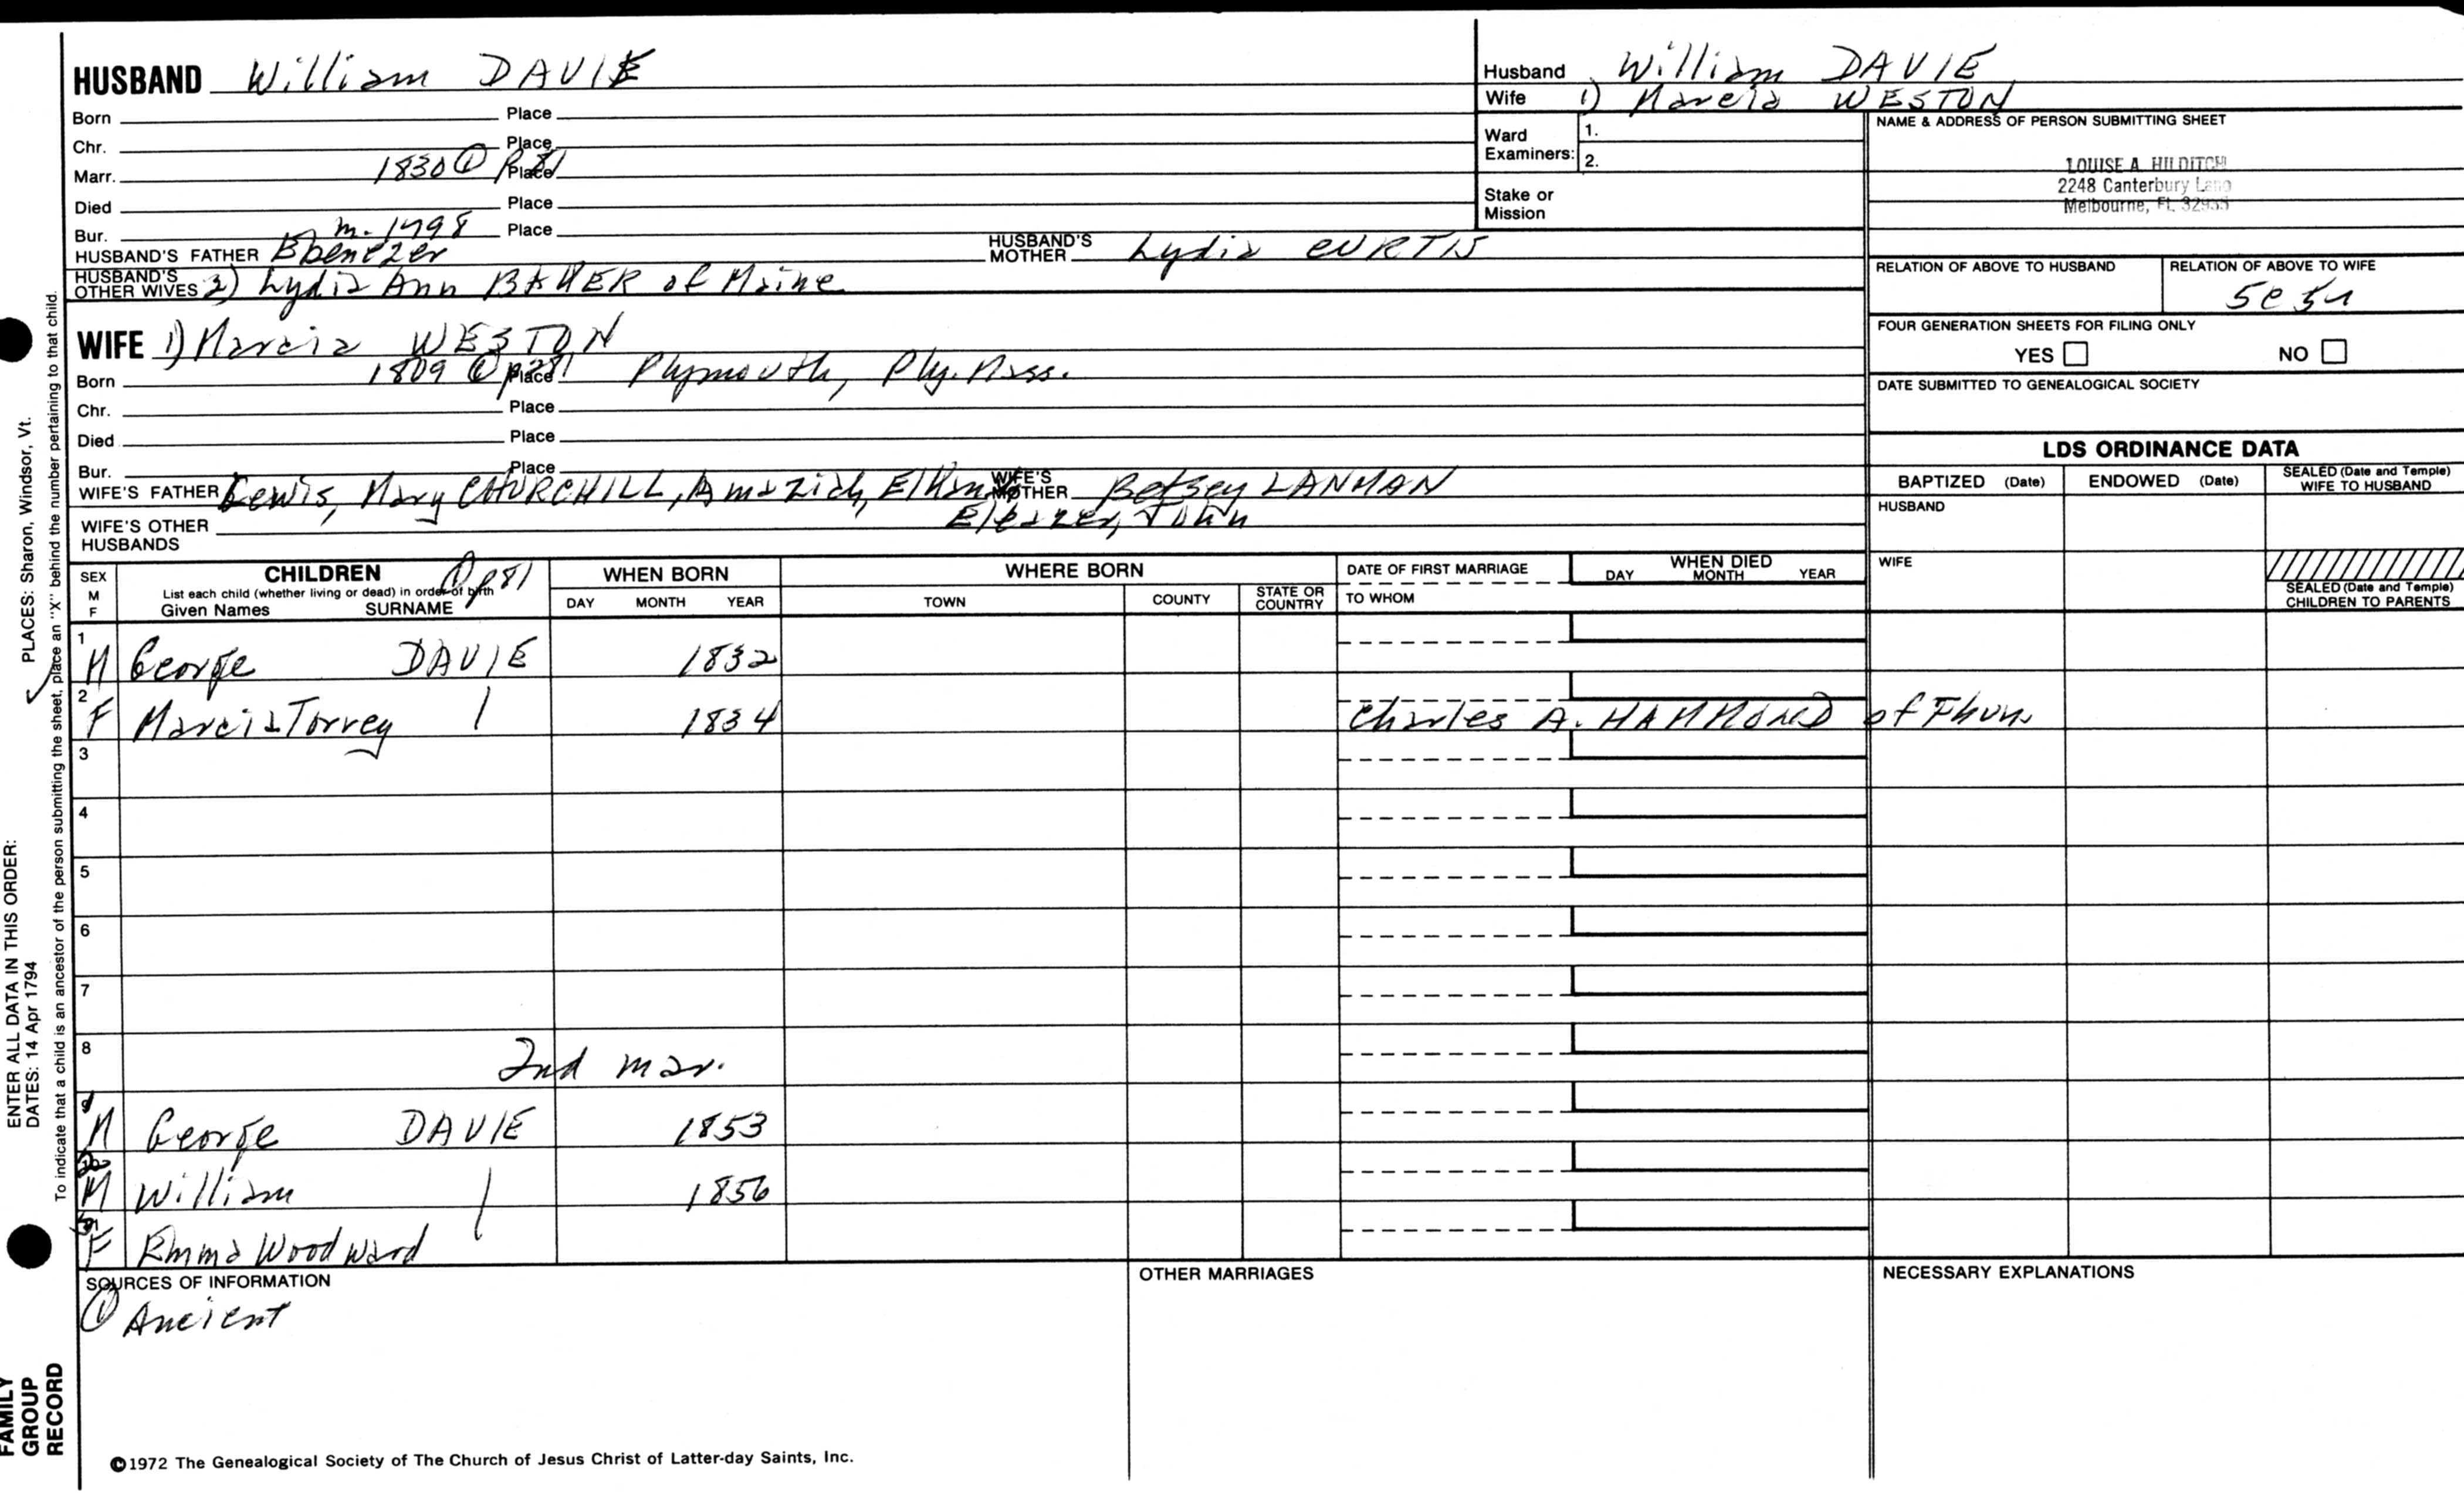 HUSBAND William DAVIE
Born Place
Chr. Place
Marr. 1830 ① p. 81 Place
Died Place
Bur. m. 1798 Place
HUSBAND'S FATHER Ebenezer HUSBAND'S MOTHER Lydia CURTIS
HUSBAND'S OTHER WIVES 2) Lydia Ann BAKER of Maine
WIFE 1) Marcia WESTON
Born 1809 ① p 281 Place Plymouth, Ply. Mass.
Chr. Place
Died Place
Bur. Place
WIFE'S FATHER Lewis, Mary CHURCHILL, Amaziah, Elkanah WIFE'S MOTHER Betsey LANMAN
Eleazer, John
WIFE'S OTHER HUSBANDS
Husband William DAVIE
Wife 1) Marcia WESTON
Ward Examiners: 1.
2.
Stake or Mission
NAME & ADDRESS OF PERSON SUBMITTING SHEET
LOUISE A. HILDITCH
2248 Canterbury Lane
Melbourne, FL 32935
RELATION OF ABOVE TO HUSBAND RELATION OF ABOVE TO WIFE
5c5r
FOUR GENERATION SHEETS FOR FILING ONLY
YES NO
DATE SUBMITTED TO GENEALOGICAL SOCIETY
LDS ORDINANCE DATA
BAPTIZED (Date) ENDOWED (Date) SEALED (Date and Temple) WIFE TO HUSBAND
HUSBAND
WIFE
SEALED (Date and Temple) CHILDREN TO PARENTS
SEX M F CHILDREN ① p 81
List each child (whether living or dead) in order of birth
Given Names SURNAME
WHEN BORN DAY MONTH YEAR
WHERE BORN TOWN COUNTY STATE OR COUNTRY
DATE OF FIRST MARRIAGE
TO WHOM
WHEN DIED DAY MONTH YEAR
1 M George DAVIE 1832
2 F Marcia Torrey 1834 Charles A. HAMMOND of
3
4
5
6
7
8 2nd mar.
M George DAVIE 1853
M William 1856
F Emma Woodward
SOURCES OF INFORMATION
① Ancient
OTHER MARRIAGES
NECESSARY EXPLANATIONS
©1972 The Genealogical Society of The Church of Jesus Christ of Latter-day Saints, Inc.
PLACES: Sharon, Windsor, Vt.
ENTER ALL DATA IN THIS ORDER:
DATES: 14 Apr 1794
To indicate that a child is an ancestor of the person submitting the sheet, place an "X" behind the number pertaining to that child.
FAMILY
GROUP
RECORD